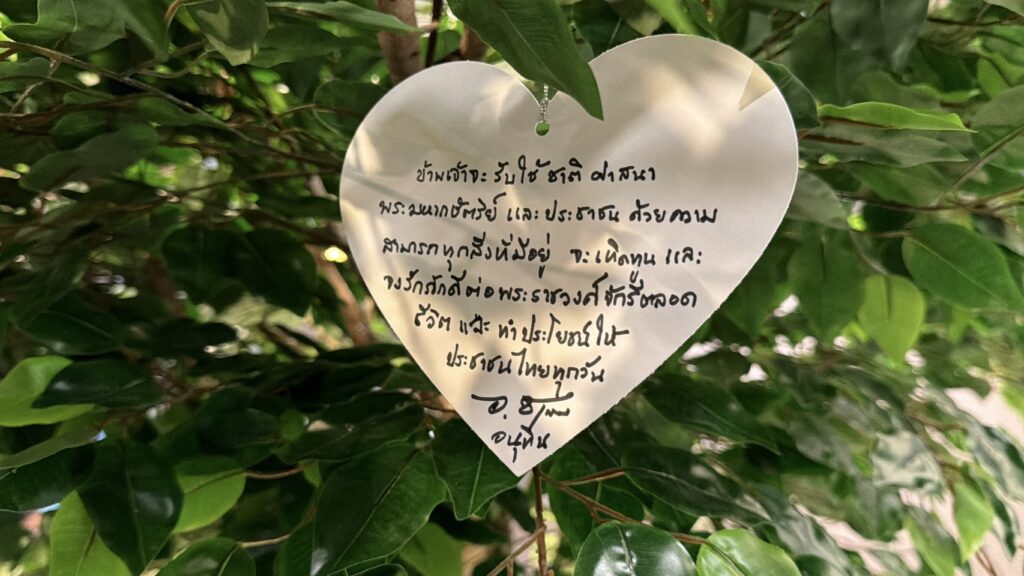 ข้าพเจ้าจะ รับใช้ ชาติ ศาสนา
พระมหากษัตริย์ และ ประชาชน ด้วยความ
สามารถทุกสิ่งที่มีอยู่ จะเทิดทูน และ
จงรักภักดีต่อพระราชวงศ์จักรีตลอด
ชีวิต และ ทำประโยชน์ให้
ประชาชนไทยทุกวัน
อนุทิน